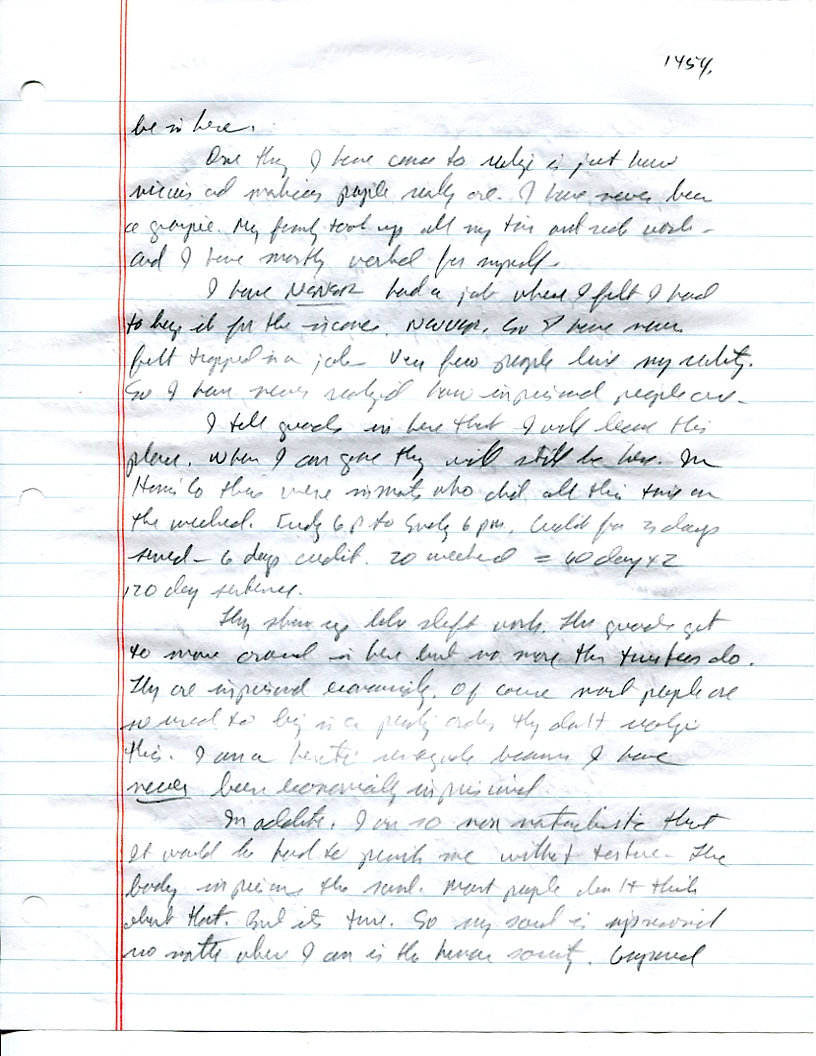 1454.
be in here.
One thing I have come to realize is just how
vicious and malicious people really are. I have never been
a groupie. My family took up all my time and such work -
and I have mostly worked for myself.
I have NEVER had a job where I felt I had
to keep it for the income. NEVVER. So I have never
felt trapped in a job. Very few people live my reality.
So I have never realized how imprisoned people are -
I tell guards in here that I will leave this
place. When I am gone they will still be here. In
there were inmates who did all this time on
the weekend. Friday 6 P to Sunday 6 pm. Credit for 3 days
served - 6 days credit. 20 weekend = 60 day x 2
120 day sentence.
They show up like shift work. The guards get
to move around in here but no more than trustees do.
They are imprisoned economically. Of course most people are
so used to being in a order they don't realize
this. I am a heretic renegade because I have
never been economically imprisoned.
In addition. I am so non materialistic that
it would be hard to punish me without torture - The
body imprisons the soul. Most people don't think
about that. But its true. So my soul is imprisoned
no matter where I am in the human society.